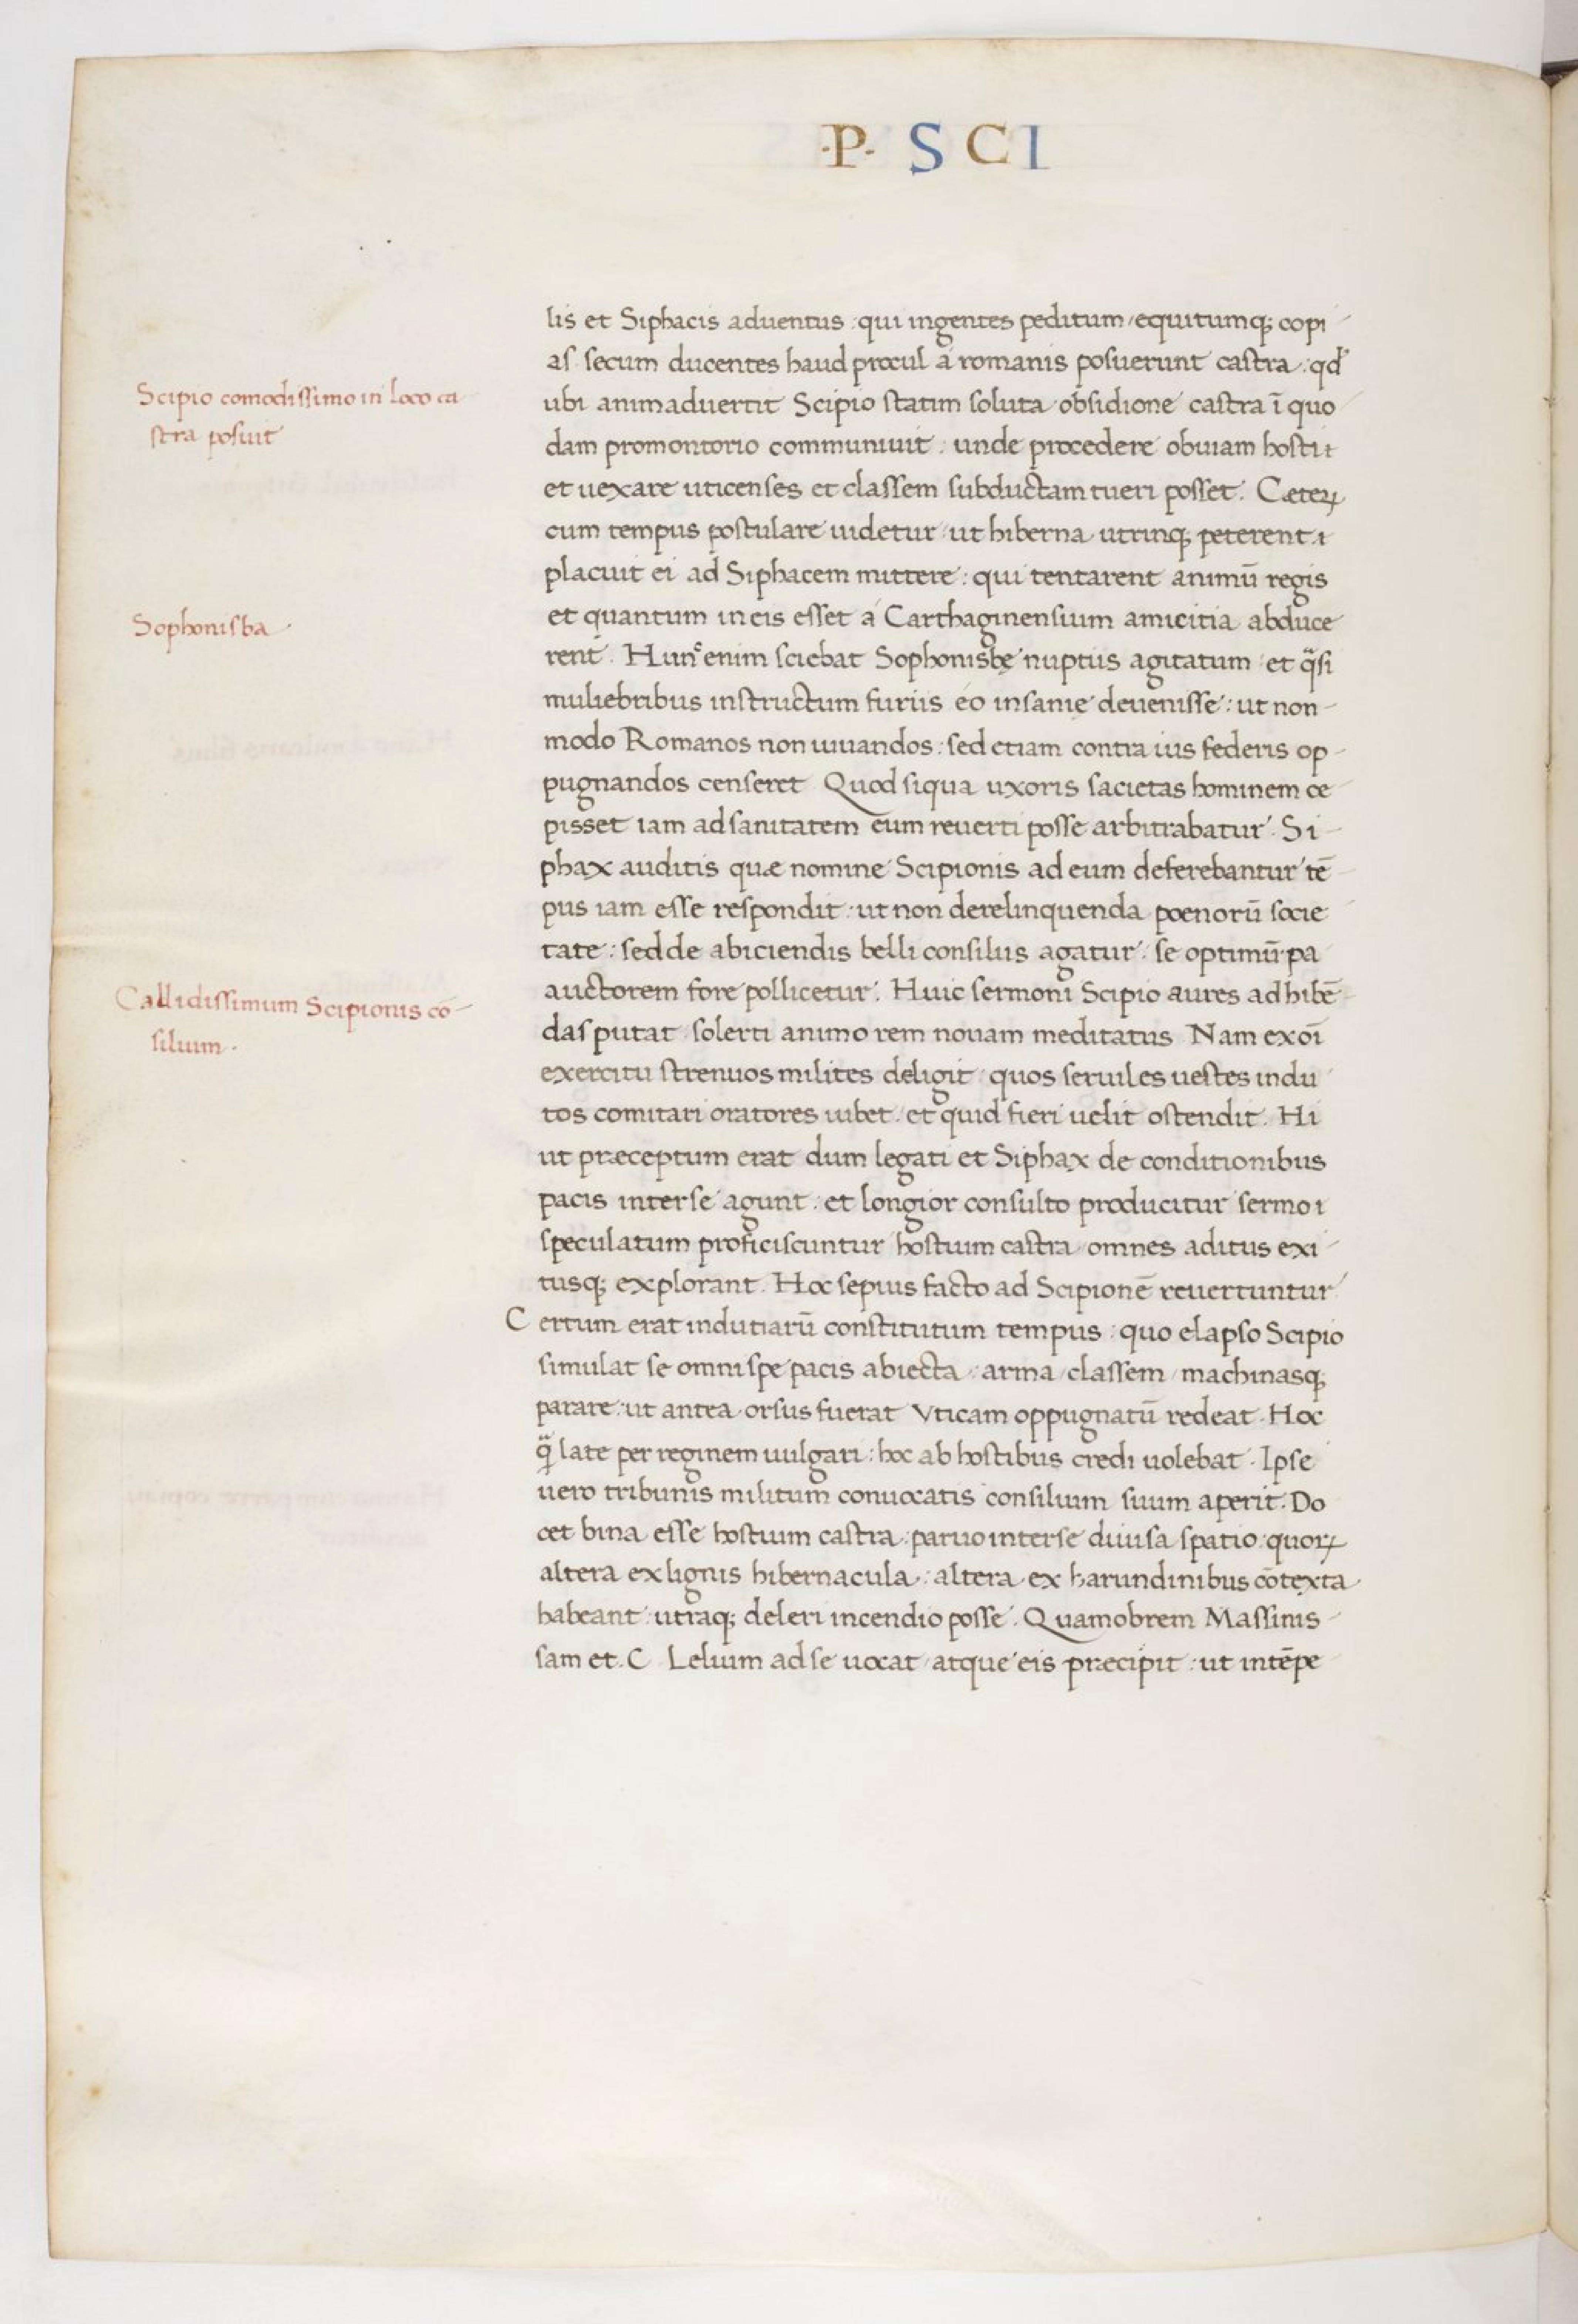 ·P· SCI
lis et Siphacis aduentus : qui ingentes peditum / equitumq; copi
as secum ducentes haud procul a romanis posuerunt castra : qd'
Scipio comodissimo in loco ca
stra posuit
ubi animaduertit Scipio statim soluta obsidione castra ī quo
dam promontorio communiuit : unde procedere obuiam hosti
et uexare uticenses et classem subductam tueri posset . Cæteꝝ
cum tempus postulare uidetur ut hiberna utrinq; peterent
placuit ei ad Siphacem mittere : qui tentarent animū regis
Sophonisba
et quantum in eis esset a Carthaginensium amicitia abduce
rent . Hunc enim sciebat Sophonisbę nuptiis agitatum et q̄si
muliebribus instructum furiis eo insanię deuenisse : ut non
modo Romanos non iuuandos : sed etiam contra ius federis op
pugnandos censeret Quod siqua uxoris sacietas hominem ce
pisset iam ad sanitatem eum reuerti posse arbitrabatur . Si
phax auditis quæ nomine Scipionis ad eum deferebantur tē
pus iam esse respondit : ut non derelinquenda poenorū socie
tate : sed de abiciendis belli consiliis agatur : se optimū pa
Callidissimum Scipionis cō
silium .
auctorem fore pollicetur . Huic sermoni Scipio aures adhibē
das putat solerti animo rem nouam meditatus Nam ex oī
exercitu strenuos milites deligit quos seruiles uestes indu
tos comitari oratores iubet et quid fieri uelit ostendit . Hi
ut præceptum erat dum legati et Siphax de conditionibus
pacis inter se agunt : et longior consulto producitur sermo
speculatum proficiscuntur hostium castra omnes aditus exi
tusq; explorant . Hoc sepius facto ad Scipionē reuertuntur
Certum erat indutiarū constitutum tempus : quo elapso Scipio
simulat se omni spe pacis abiecta : arma / classem / machinasq;
parare : ut antea orsus fuerat Vticam oppugnatū redeat . Hoc
q̄ late per reginem uulgari : hoc ab hostibus credi uolebat . Ipse
uero tribunis militum conuocatis consilium suum aperit . Do
cet bina esse hostium castra paruo inter se diuisa spatio quoꝝ
altera ex lignis hibernacula : altera ex harundinibus cōtexta
habeant utraq; deleri incendio posse . Quamobrem Massinis
sam et . C Lelium ad se uocat atque eis præcipit : ut intēpe